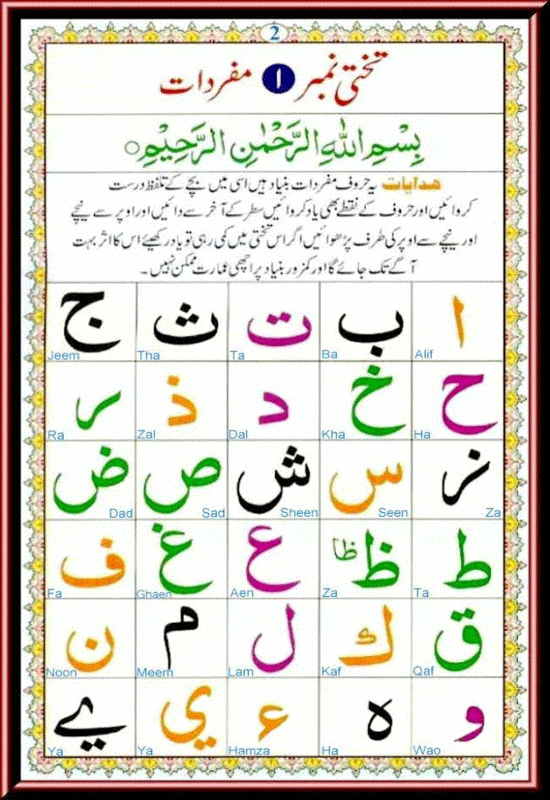 2
تختی نمبر ۱ مفردات
بِسْمِ اللّٰهِ الرَّحْمٰنِ الرَّحِيْمِ
ھدایات یہ حروف مفردات بنیاد ہیں اسی میں بچے کے تلفظ درست
کروائیں اور حروف کے نقطے بھی یاد کروائیں سطر کے آخر سے دائیں اور اوپر سے نیچے
اور نیچے سے اوپر کی طرف پڑھوائیں اگر اس تختی میں کمی رہی تو یاد رکھیئے اس کا اثر بہت
آگے تک جائے گا اور کمزور بنیاد پر اچھی عمارت ممکن نہیں۔
ا ب ت ث ج
Alif Ba Ta Tha Jeem
ح خ د ذ ر
Ha Kha Dal Zal Ra
ز س ش ص ض
Za Seen Sheen Sad Dad
ط ظ ظا ع غ ف
Ta Za Aen Ghaen Fa
ق ك ل م ن
Qaf Kaf Lam Meem Noon
و ه ء ي ے
Wao Ha Hamza Ya Ya